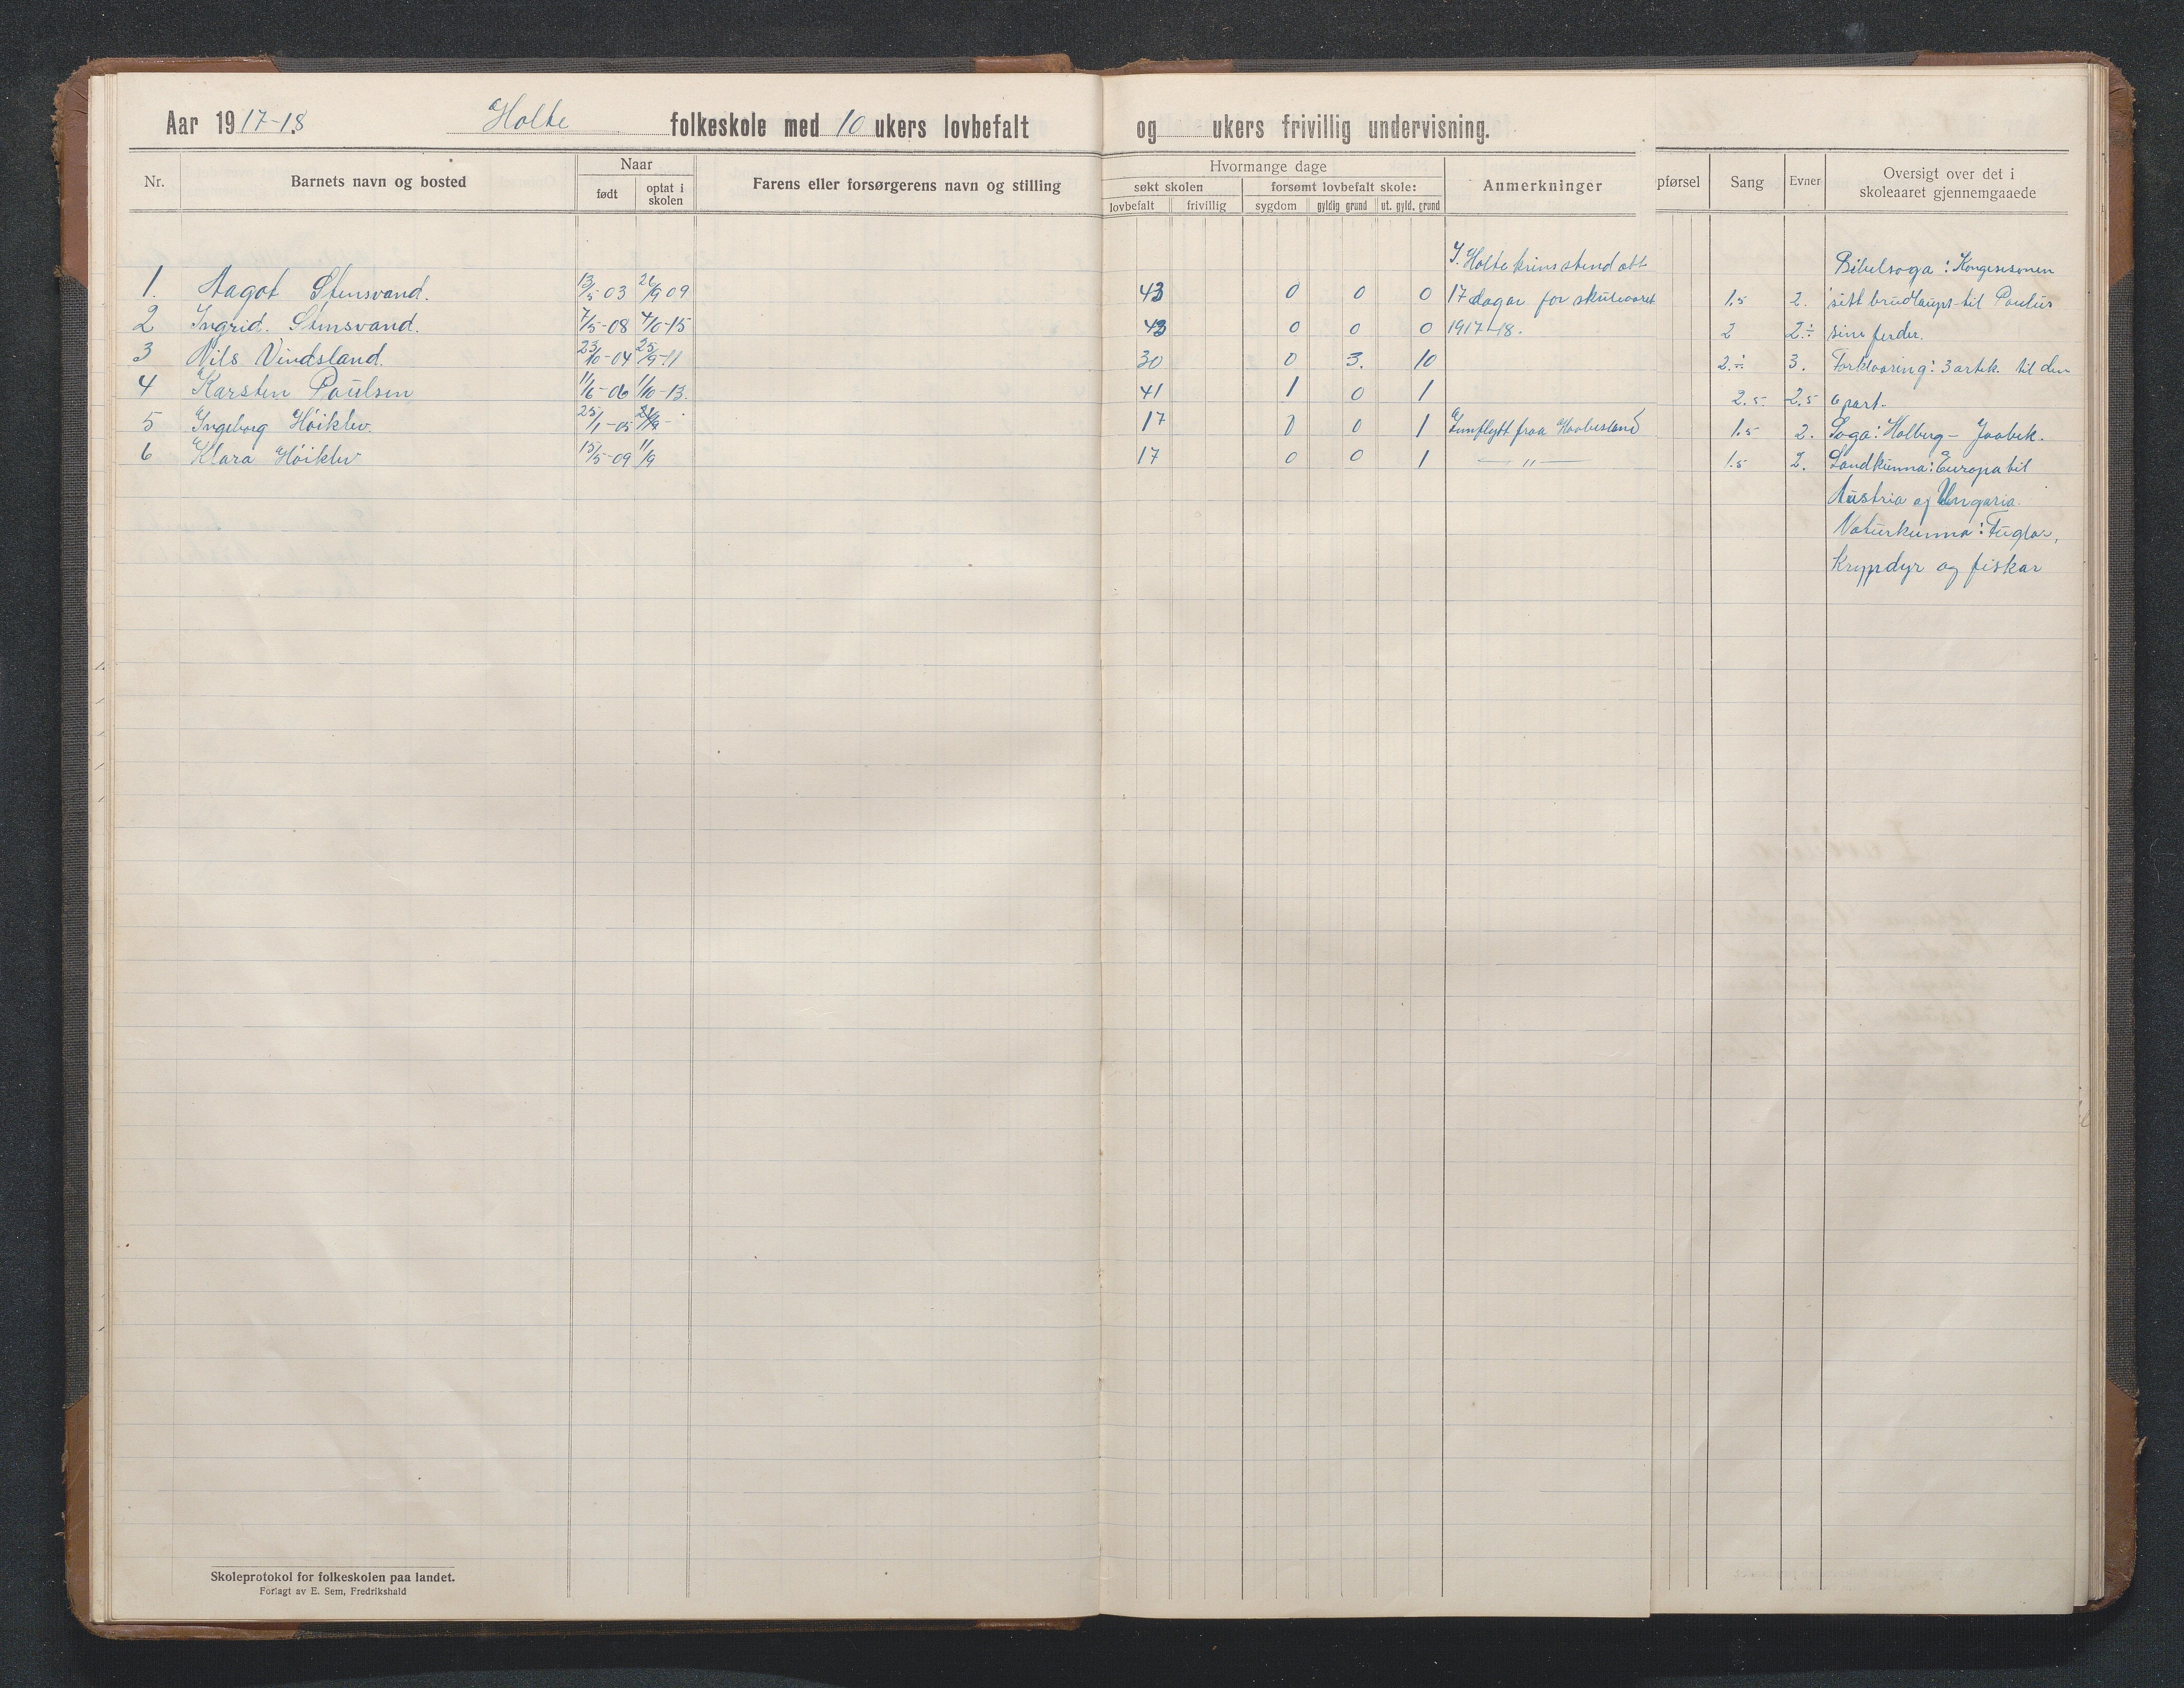 Aar 1917-18 Holte folkeskole med 10 ukers lovbefalt og ukers frivillig undervisning.
Nr. Barnets navn og bosted Naar Farens eller forsørgerens navn og stilling Hvormange dage Anmerkninger pførsel Sang Evner Oversigt over det i skoleaaret gjennemgaaede
født optat i skolen søkt skolen forsømt lovbefalt skole:
lovbefalt frivillig sygdom gyldig grund ut. gyld. grund
I Holte krins stend att Bibelsoga: Kongesonen
1. Aagot Stensvand. 13/5 03 26/9 09 43 0 0 0 17 dagar for skuleaaret 1.5 2. sitt brudlaup til Paulus
2 Ingrid. Stensvand. 7/5-08 4/10-15 43 0 0 0 1917-18. 2 2÷ sine ferder.
3 Nils Vindsland. 23/10-04 25/9-11 30 0 3. 10 2.÷ 3. Forklaaring: 3 artik. til den
4 Karsten Paulsen 11/6-06 1/10-13. 41 1 0 1 2.5 2.5 6 part.
5 Ingeborg Höiklev. 25/1-05 17 0 1 Innflytt fraa Haabesland 1.5 2. Soga: Holberg - Jaabek.
6 Klara Höiklev 15/5-09 11/9 17 0 0 1 — " — 1.5 2. Landkunna: Europa til
Austria og Ungaria.
Naturkunna: Fuglar,
Krypdyr og fiskar
Skoleprotokol for folkeskolen paa landet.
Forlagt av E. Sem, Fredrikshald